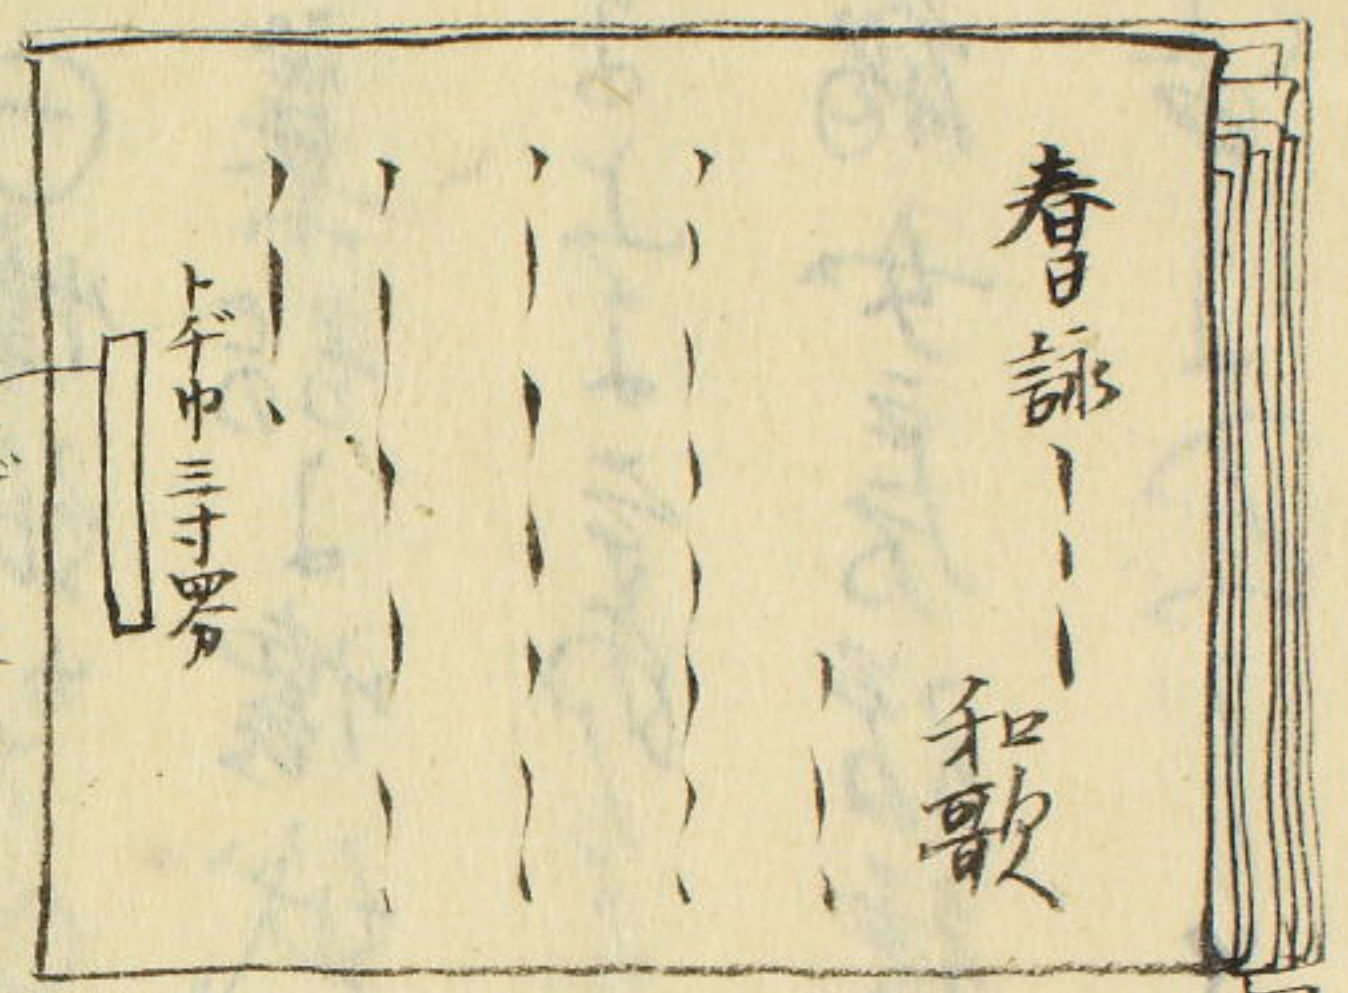 春日詠
和歌
トヂ巾三寸四分